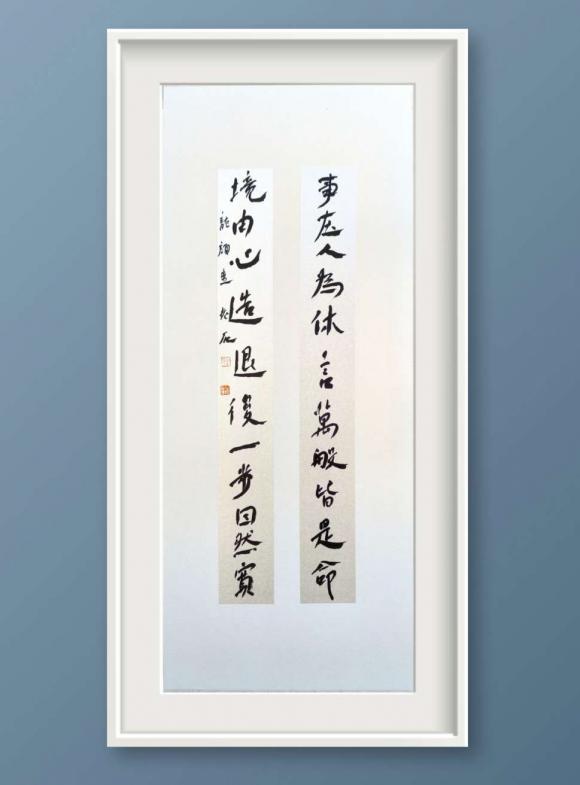 事在人為休言萬般皆是命
境由心造退後一步自然寬